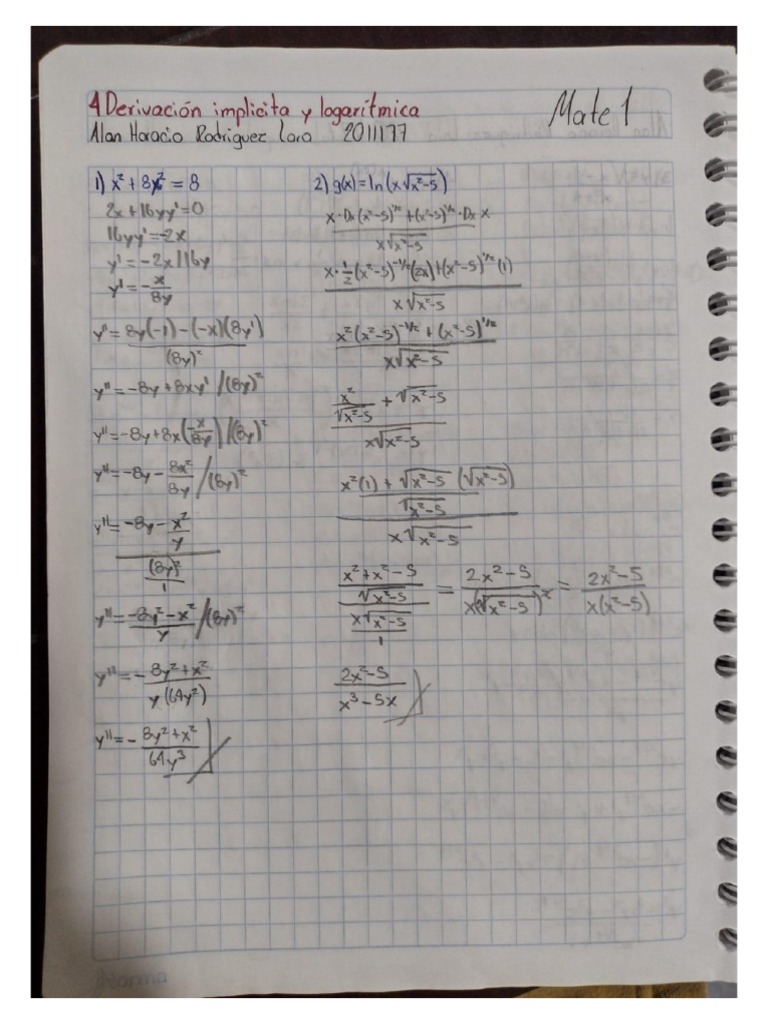 4 Derivación implicita y logarítmica
Mate 1
Alan Horacio Rodriguez Lara 2011177
1) x² + 8y² = 8
2x + 16yy' = 0
16yy' = -2x
y' = -2x/16y
y' = -x/8y
y'' = 8y(-1) - (-x)(8y') / (8y)²
y'' = -8y + 8xy' / (8y)²
y'' = -8y + 8x(-x/8y) / (8y)²
y'' = -8y - 8x²/8y / (8y)²
y'' = -8y - x²/y / (8y)²/1
y'' = -8y² - x²/y / (8y)²
y'' = - 8y² + x² / y(64y²)
y'' = - 8y² + x² / 64y³
2) g(x) = ln(x√x²-5)
x · Dx(x²-5)^1/2 + (x²-5)^1/2 · Dx x / x√x²-5
x · 1/2 (x²-5)^-1/2 (2x) + (x²-5)^1/2 (1) / x√x²-5
x²(x²-5)^-1/2 + (x²-5)^1/2 / x√x²-5
x²/√x²-5 + √x²-5 / x√x²-5
x²(1) + √x²-5 (√x²-5) / √x²-5 / x√x²-5
x² + x² - 5 / √x²-5 / x√x²-5 / 1 = 2x²-5 / x(√x²-5)² = 2x²-5 / x(x²-5)
2x²-5 / x³-5x
Norma